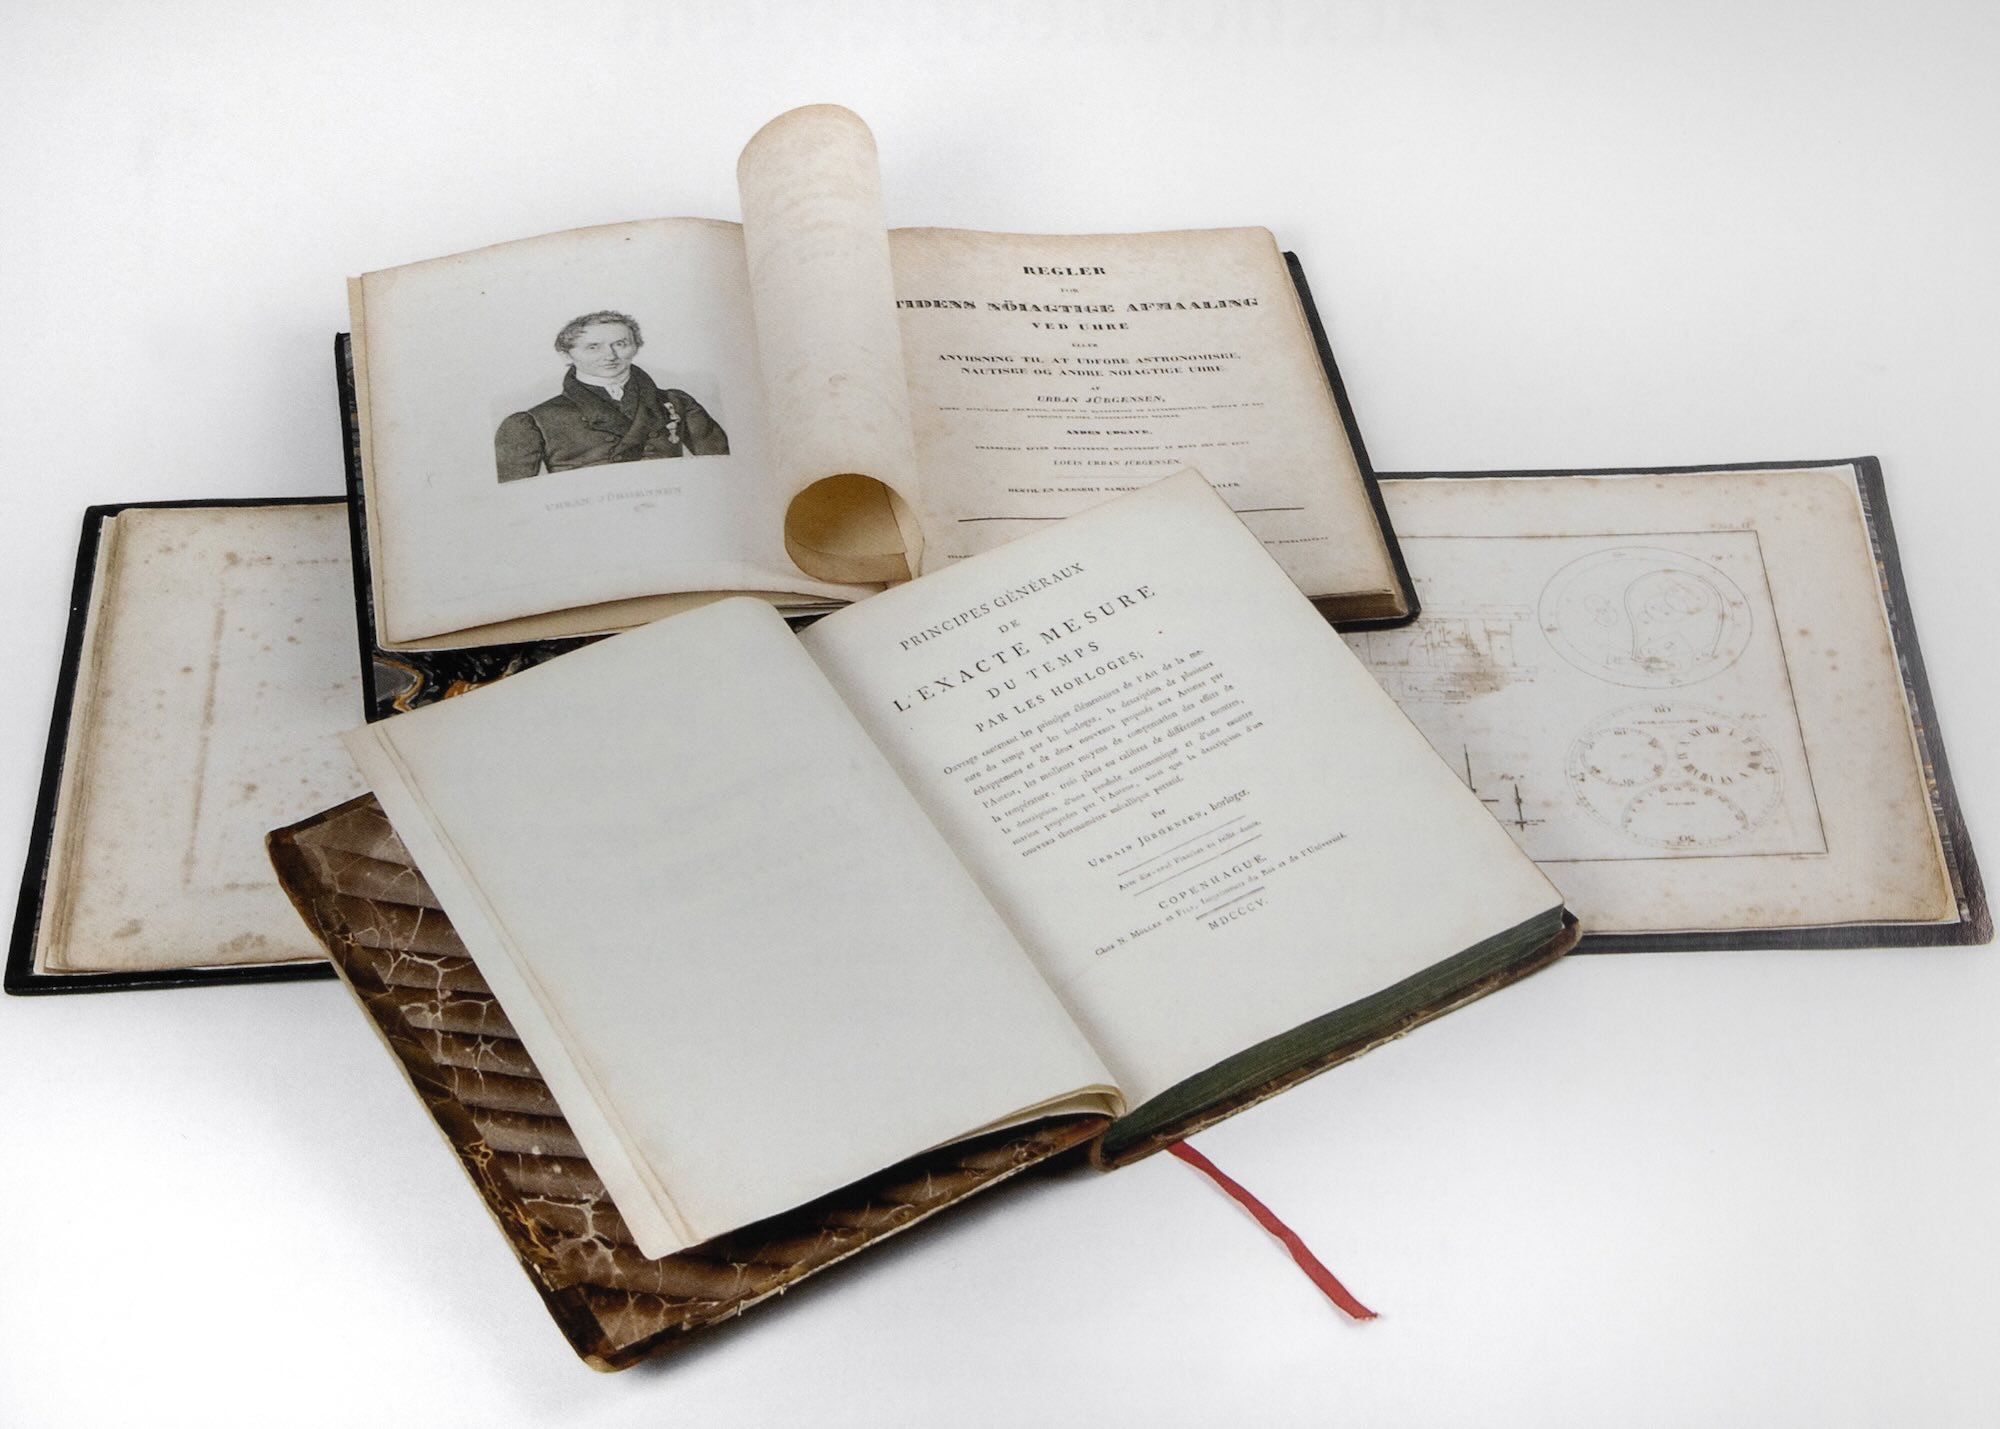 URBAN JÜRGENSEN
REGLER
FOR
TIDENS NÖIAGTIGE AFMAALING
VED UHRE
ELLER
ANVIISNING TIL AT UDFÖRE ASTRONOMISKE,
NAUTISKE OG ANDRE NÖIAGTIGE UHRE
AF
URBAN JÜRGENSEN,
ANDEN UDGAVE,
LOUIS URBAN JÜRGENSEN.
HERTIL EN SÆRSKILT SAMLING
PRINCIPES GÉNÉRAUX
DE
L'EXACTE MESURE
DU TEMPS
PAR LES HORLOGES;
Ouvrage contenant les principes élémentaires de l'Art de la me-
sure du temps par les horloges, la description de plusieurs
échappemens et de deux nouveaux proposés aux Artistes par
l'Auteur, les meilleurs moyens de compensation des effets de
la température, trois plans ou calibres de différentes montres,
la description d'une pendule astronomique et d'une montre
marine projetées par l'Auteur, ainsi que la description d'un
nouveau thermomètre métallique portatif.
Par
URBAIN JÜRGENSEN, horloger.
Avec dix-neuf Planches en taille-douce.
COPENHAGUE
Chez N. MÖLLER et FILS, Imprimeurs du Roi et de l'Université.
MDCCCV.
60
60
30